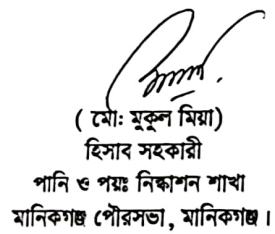 ( মোঃ মুকুল মিয়া)
হিসাব সহকারী
পানি ও পয়ঃ নিষ্কাশন শাখা
মানিকগঞ্জ পৌরসভা, মানিকগঞ্জ।